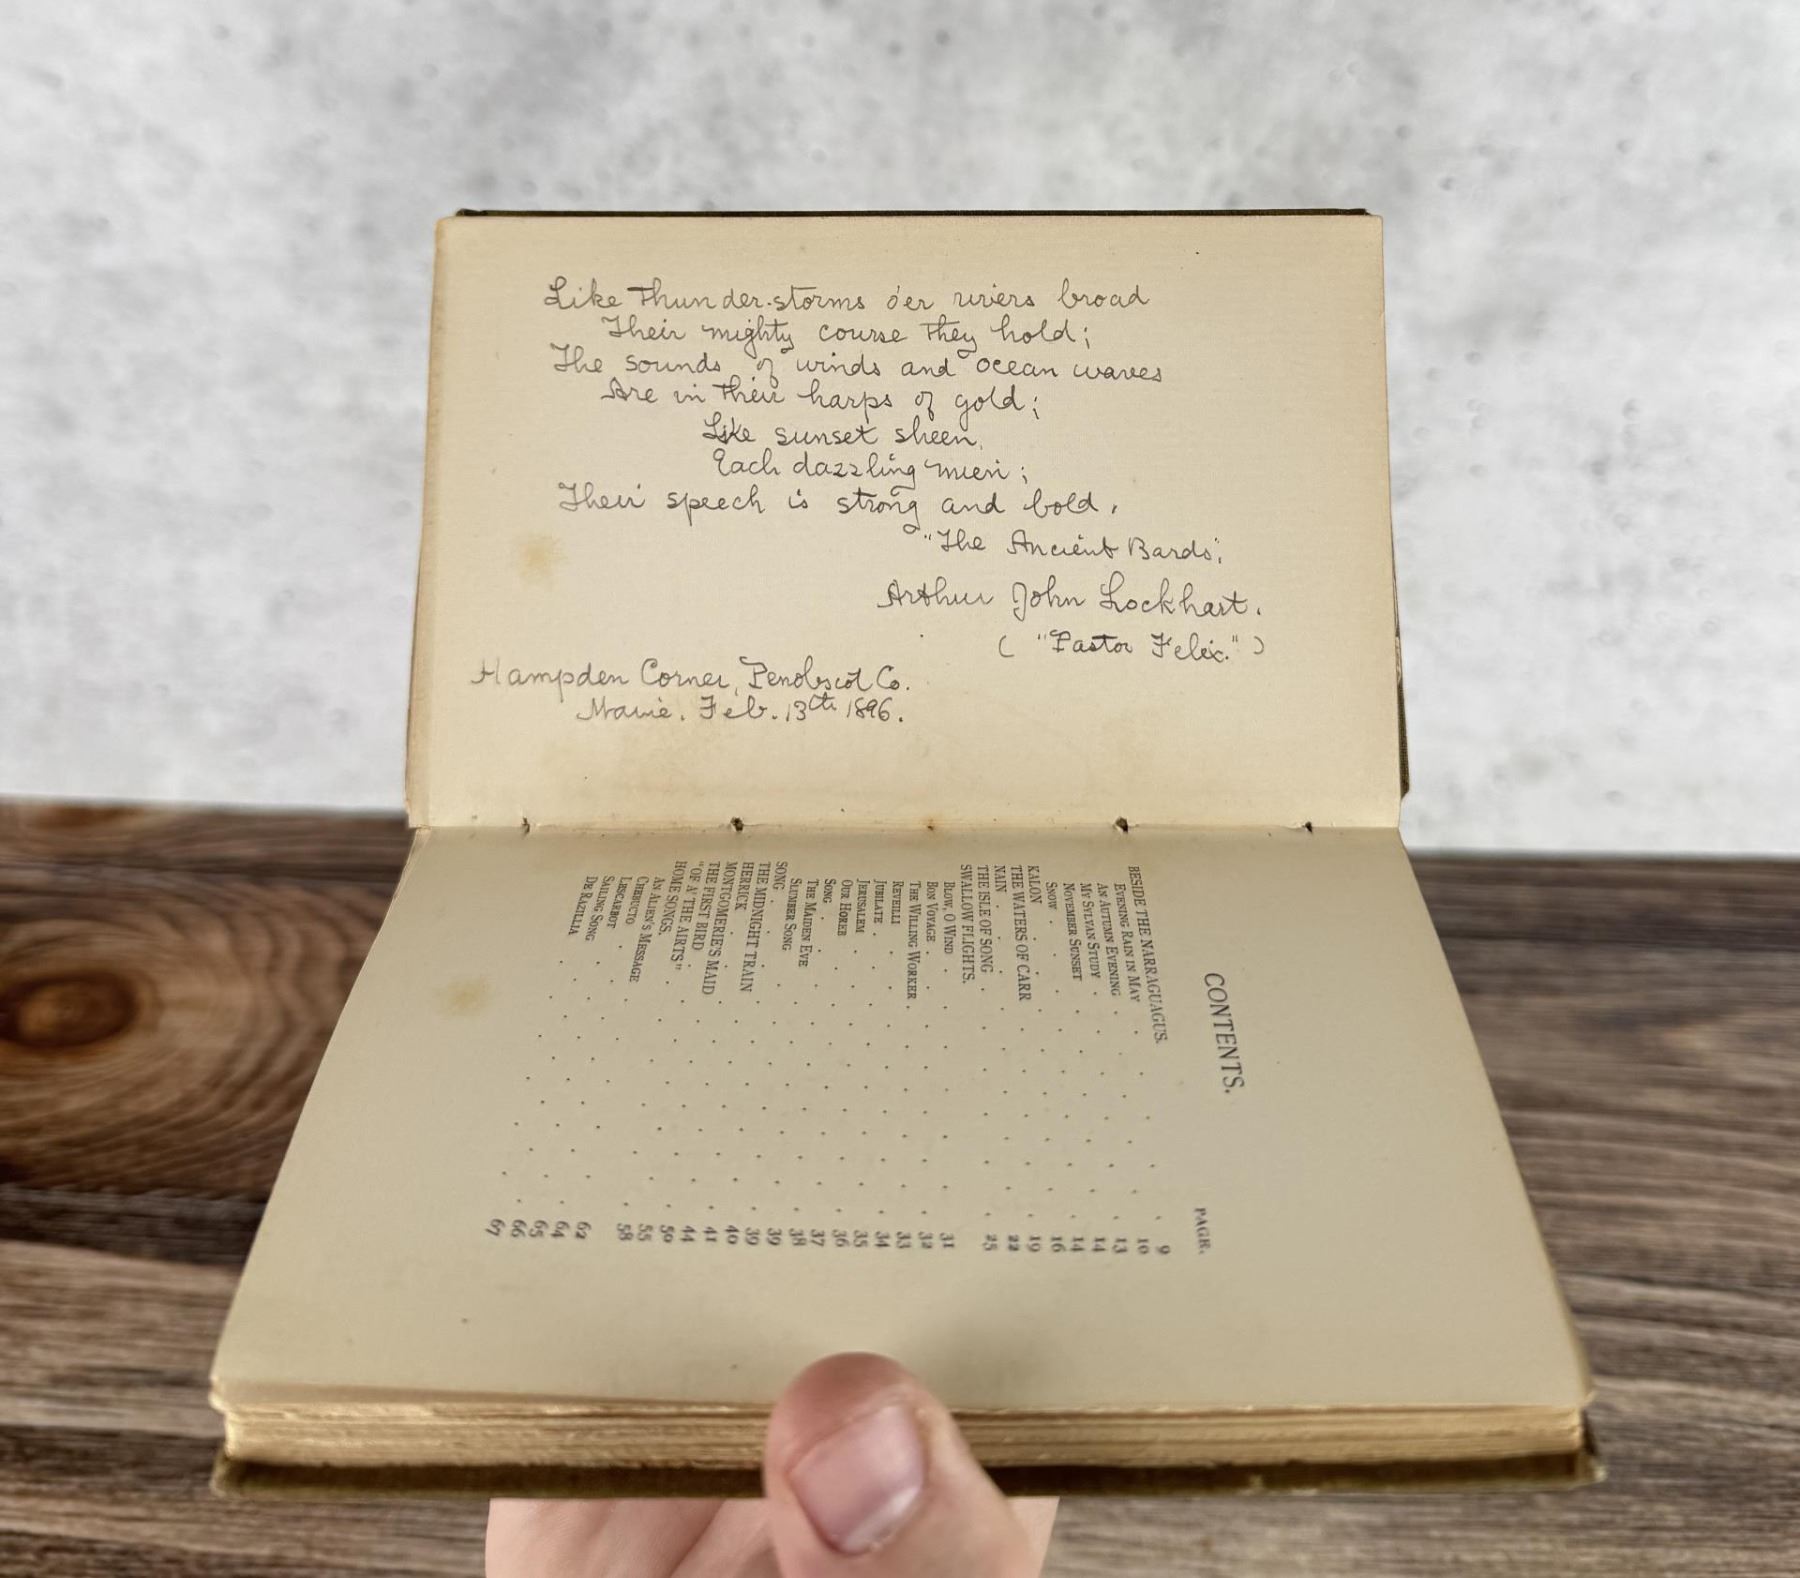 Like thunder-storms o'er rivers broad
Their mighty course they hold;
The sounds of winds and ocean waves
Are in their harps of gold;
Like sunset sheen,
Each dazzling mien;
Their speech is strong and bold.
"The Ancient Bards".
Arthur John Lockhart.
( "Pastor Felix." )
Hampden Corner, Penobscot Co.
Maine. Feb. 13th 1896.
CONTENTS.
PAGE.
BESIDE THE NARRAGUAGUS. 9
EVENING RAIN IN MAY 10
AN AUTUMN EVENING 13
MY SYLVAN STUDY 14
NOVEMBER SUNSET 14
SNOW 16
KALON 19
THE WATERS OF CARR 22
NAIN
THE ISLE OF SONG 25
SWALLOW FLIGHTS.
BLOW, O WIND 31
BON VOYAGE 32
THE WILLING WORKER 33
REVEILLI 34
JUBILATE 35
JERUSALEM 36
OUR HOREB 37
SONG 38
THE MAIDEN EVE 39
SLUMBER SONG 39
SONG 40
THE MIDNIGHT TRAIN 41
HERRICK 44
MONTGOMERIE'S MAID 50
THE FIRST BIRD 55
"OF A' THE AIRTS" 58
HOME SONGS.
AN ALIEN'S MESSAGE 62
CHEBUCTO 64
LESCARBOT 65
SAILING SONG 66
DE RAZILLIA 67